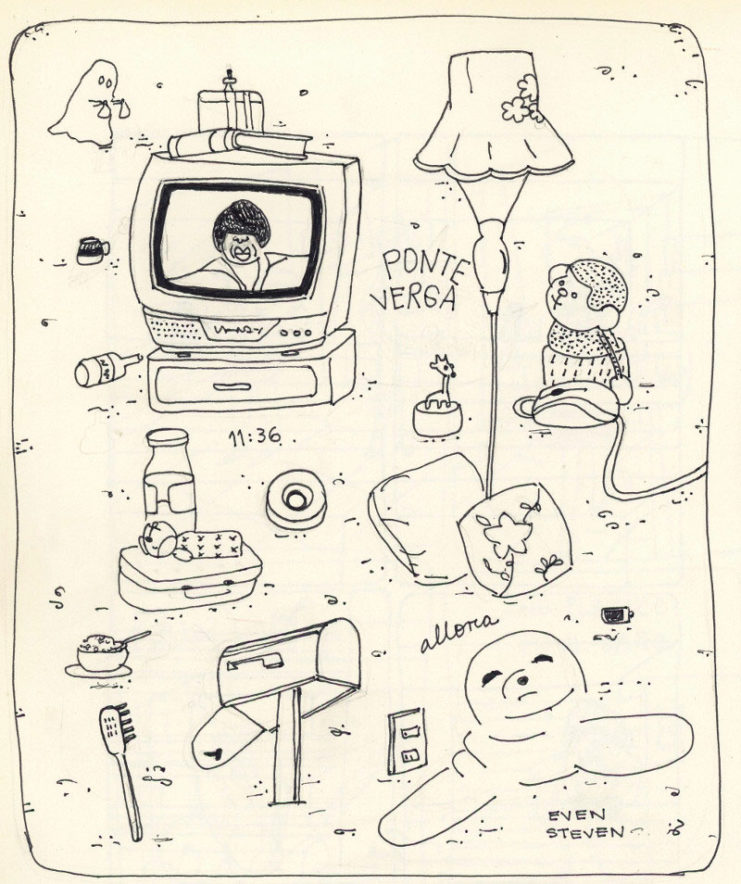 PONTE
VERGA
11:36.
allora
EVEN
STEVEN